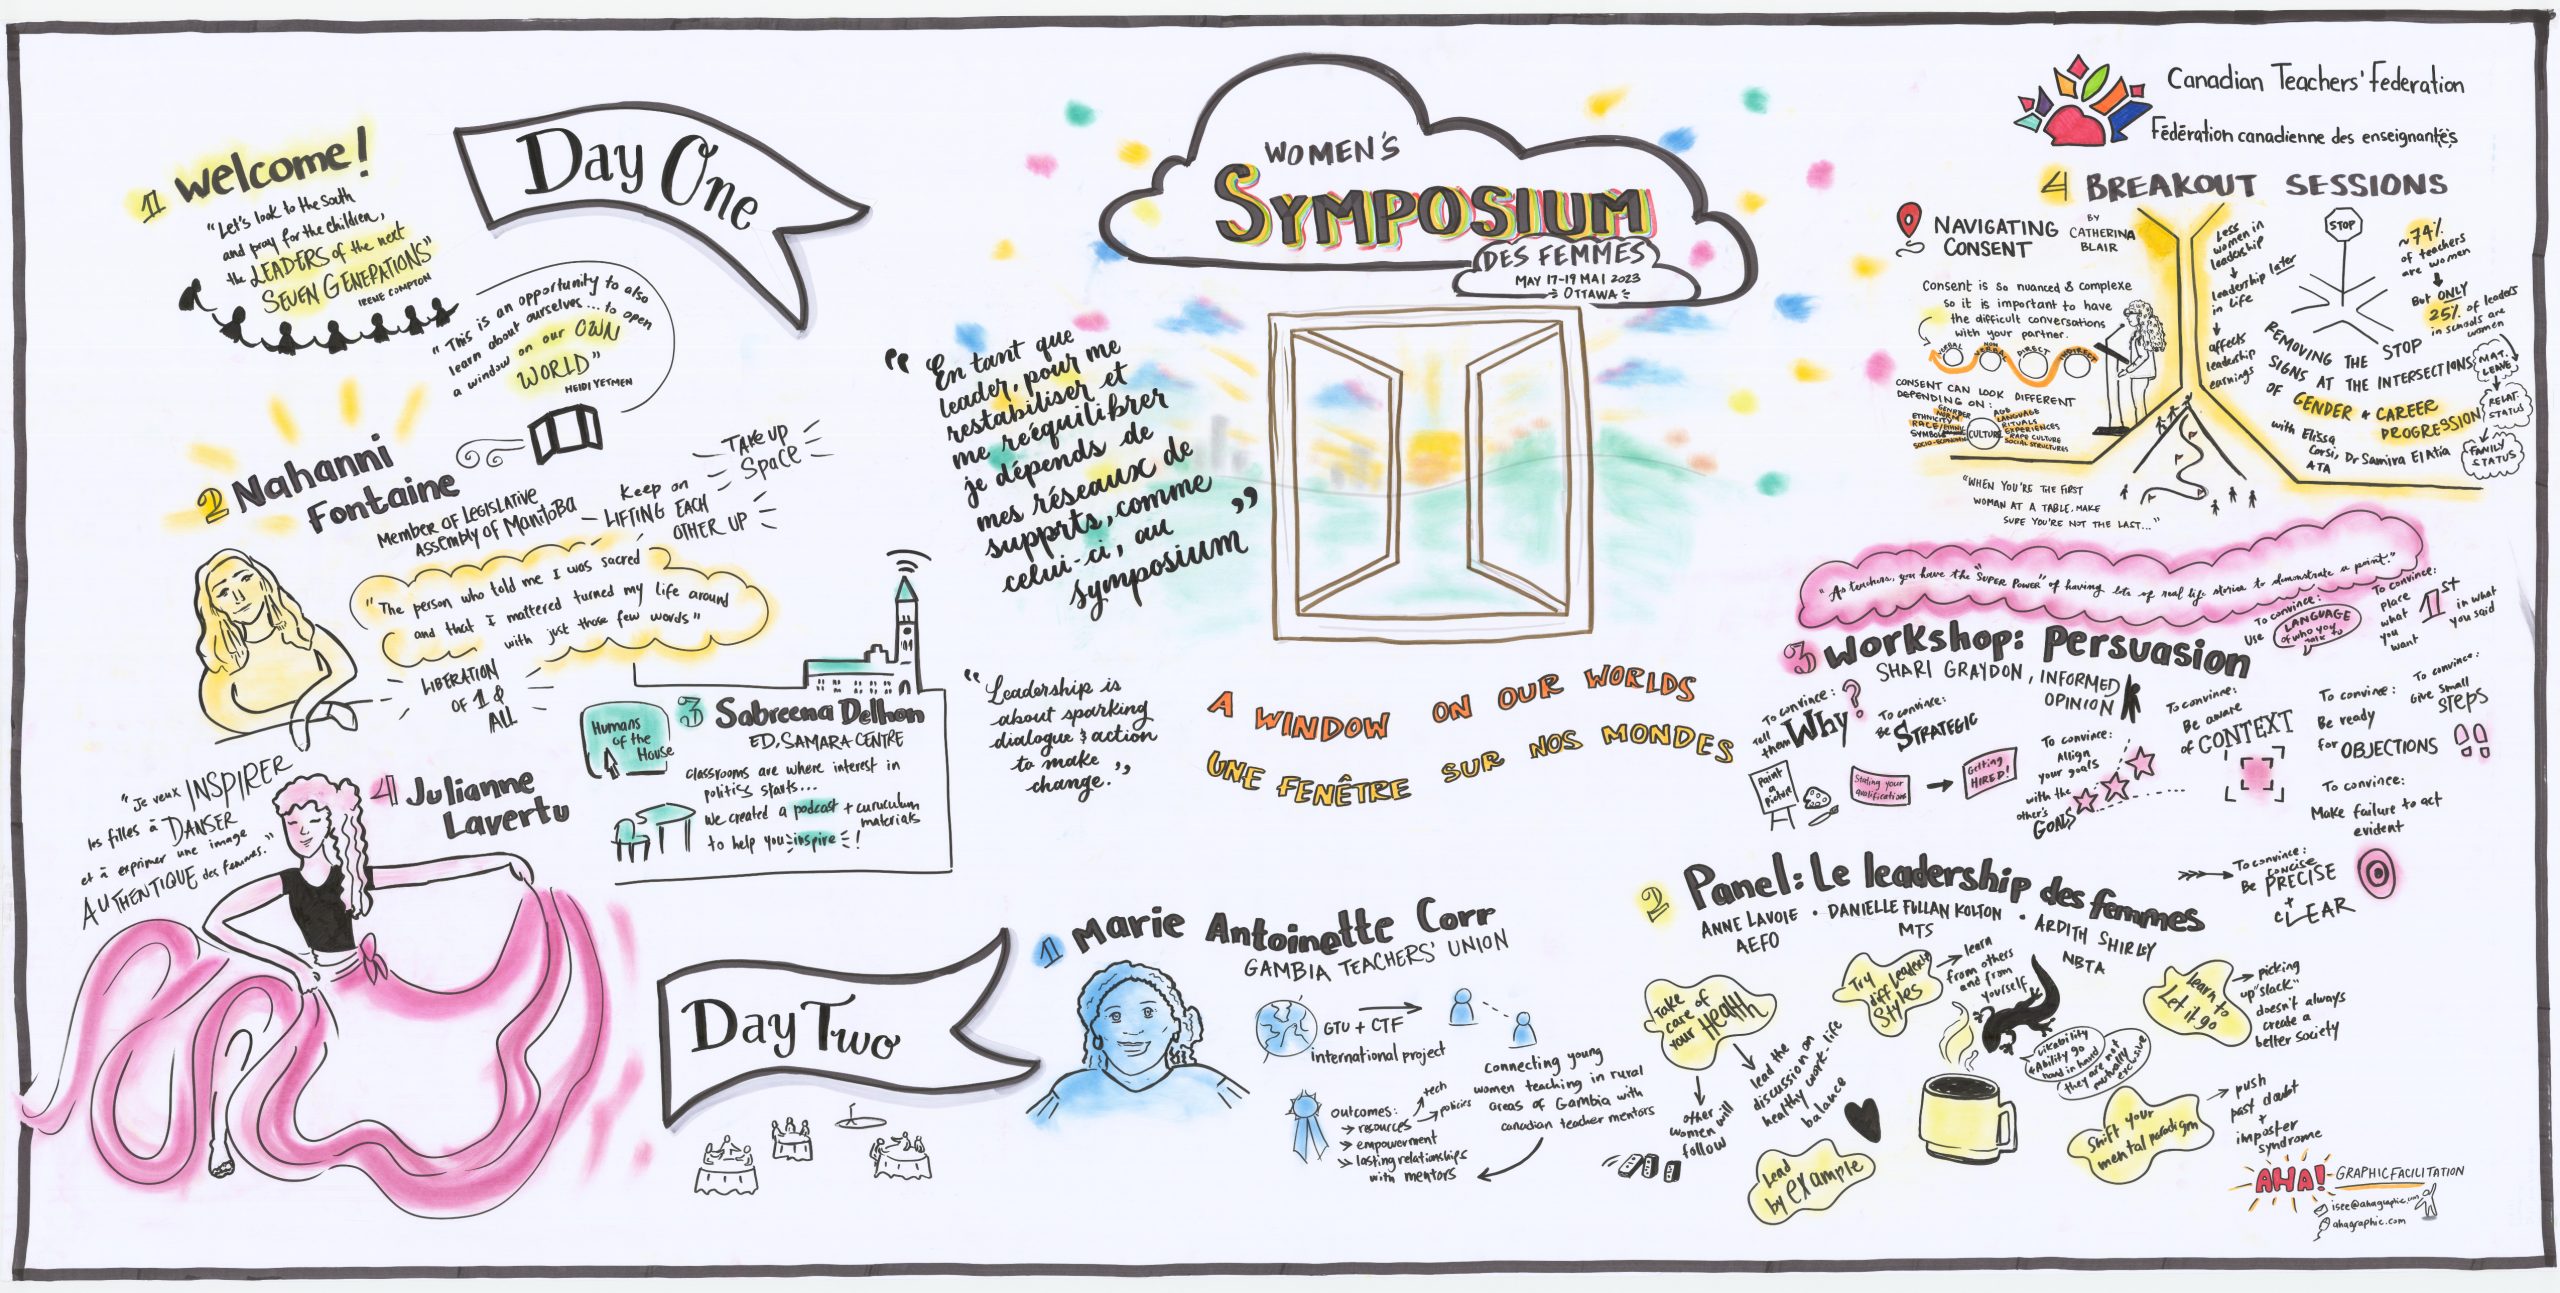 WOMEN'S
SYMPOSIUM
DES FEMMES
MAY 17-19 MAI 2023
OTTAWA
Canadian Teachers' Federation
Fédération canadienne des enseignantes
"En tant que
leader, pour me
restabiliser et
me rééquilibrer
je dépends de
mes réseaux de
supprts, comme
celui-ci, au
symposium"
"Leadership is
about sparking
dialogue & action
to make
change."
A WINDOW ON OUR WORLDS
UNE FENÊTRE SUR NOS MONDES
Day One
1 Welcome!
"Let's look to the South
and pray for the children,
the LEADERS of the next
SEVEN GENERATIONS"
IRENE COMPTON
"This is an opportunity to also
learn about ourselves... to open
a window on our OWN
WORLD"
HEIDI YETMEN
2 Nahanni
Fontaine
MEMBER OF LEGISLATIVE
ASSEMBLY OF MANITOBA
KEEP ON
LIFTING EACH
OTHER UP
TAKE UP
SPACE
"The person who told me I was sacred
and that I mattered turned my life around
with just those few words"
LIBERATION
OF 1 &
ALL
3 Sabreena Delhon
ED, SAMARA CENTRE
Humans
of the
House
classrooms are where interest in
politics starts...
We created a podcast + curuculum
materials
to help you inspire!
4 Julianne
Lavertu
"Je veux INSPIRER
les filles à DANSER
et à exprimer une image
AUTHENTIQUE des femmes."
Day Two
1 Marie Antoinette Corr
GAMBIA TEACHERS' UNION
GTU + CTF
international project
connecting young
women teaching in rural
areas of Gambia with
canadian teacher mentors
outcomes:
resources
tech
policies
empowerment
lasting relationships
with mentors
2 Panel: Le leadership des femmes
ANNE LAVOIE • DANIELLE FULLAN KOLTON • ARDITH SHIRLEY
AEFO
MTS
NBTA
Take
care of
your Health
other
women will
follow
lead the
discussion on
healthy work-life
balance
Lead
by example
Try
diff Leadership
Styles
learn
from others
and from
yourself
Likability
+Ability go
hand in hand
they are not
mutually
exclusive
Learn to
Let it go
picking
up "slack"
doesn't always
create a
better society
Shift your
mental paradigm
push
past doubt
+
imposter
syndrome
3 Workshop: Persuasion
SHARI GRAYDON, INFORMED
OPINION
"As teachers, you have the "SUPER POWER" of having lots of real life stories to demonstrate a point."
To convince:
Tell them Why?
Paint
a
picture
To convince:
Be STRATEGIC
Stating your
qualifications
Getting
HIRED!
To convince:
Allign
your goals
with the
other's
GOALS
To convince:
Be aware
of CONTEXT
To convince:
Use LANGUAGE
of who you
talk to
To convince:
place
what
you
want
1st
in what
you said
To convince:
Be ready
for OBJECTIONS
To convince:
Give small
STEPS
To convince:
Make failure to act
evident
To convince:
Be concise
PRECISE
+
CLEAR
4 BREAKOUT SESSIONS
NAVIGATING
CONSENT
BY
CATHERINA
BLAIR
Consent is so nuanced & complexe
so it is important to have
the difficult conversations
with your partner.
VERBAL
NON
VERBAL
DIRECT
INDIRECT
CONSENT CAN LOOK DIFFERENT
DEPENDING ON:
GENDER
NORM
ETHNICITY
RACE/ETHNIC
SYMBOLS
SOCIO-ECONOMIC
CULTURE
AGE
LANGUAGE
RITUALS
EXPERIENCES
RAPE CULTURE
SOCIAL STRUCTURES
"WHEN YOU'RE THE FIRST
WOMAN AT A TABLE, MAKE
SURE YOU'RE NOT THE LAST..."
Less
women in
leadership
leadership later
in life
affects
leadership
earnings
STOP
~74%
of teachers
are women
But ONLY
25% of leaders
in schools are
women
REMOVING THE STOP
SIGNS AT THE INTERSECTIONS
OF GENDER & CAREER
PROGRESSION
with Elissa
Corsi, Dr Samira ElAtia
ATA
MAT.
LEAVE
RELAT.
STATUS
FAMILY
STATUS
AHA! GRAPHIC FACILITATION
isee@ahagraphic.com
ahagraphic.com